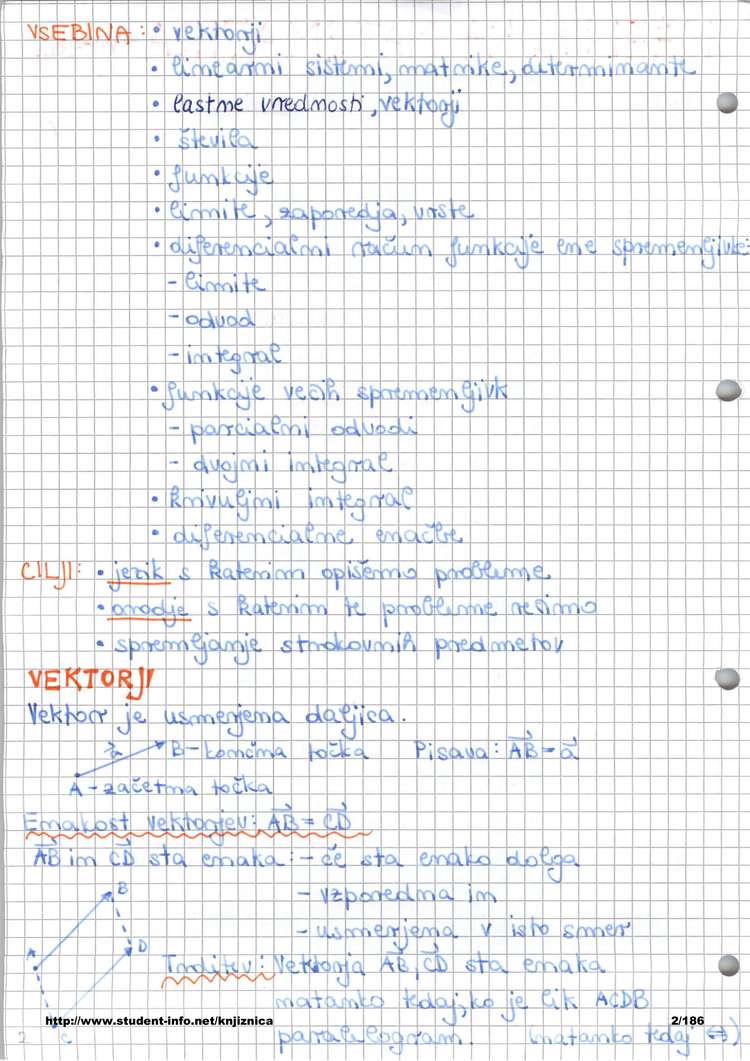 VSEBINA: • vektorji
• linearni sistemi, matrike, determinante
• lastne vrednosti, vektorji
• števila
• funkcije
• limite, zaporedja, vrste
• diferencialni račun funkcije ene spremenljivke:
- limite
- odvod
- integral
• funkcije večih spremenljivk
- parcialni odvodi
- dvojni integral
• krivuljni integral
• diferencialne enačbe
CILJI: • jezik s katerim opišemo probleme
• orodje s katerim te probleme rešimo
• spremljanje strokovnih predmetov
VEKTORJI
Vektor je usmerjena daljica.
a⃗ B - končna točka Pisava: AB⃗ = a⃗
A - začetna točka
Enakost vektorjev: AB⃗ = CD⃗
AB⃗ in CD⃗ sta enaka: - če sta enako dolga
B - vzporedna in
- usmerjena v isto smer
A D Trditev: Vektorja AB⃗, CD⃗ sta enaka
natanko tedaj, ko je lik ACDB
http://www.student-info.net/knjiznica 2/186
2 C paralelogram. (natanko tedaj ⇔)